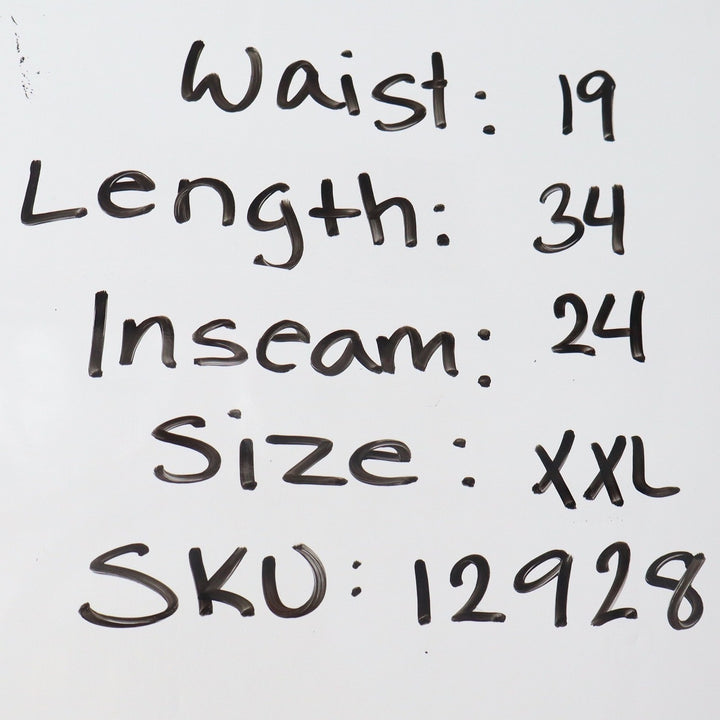 Waist: 19
Length: 34
Inseam: 24
Size: XXL
SKU: 12928